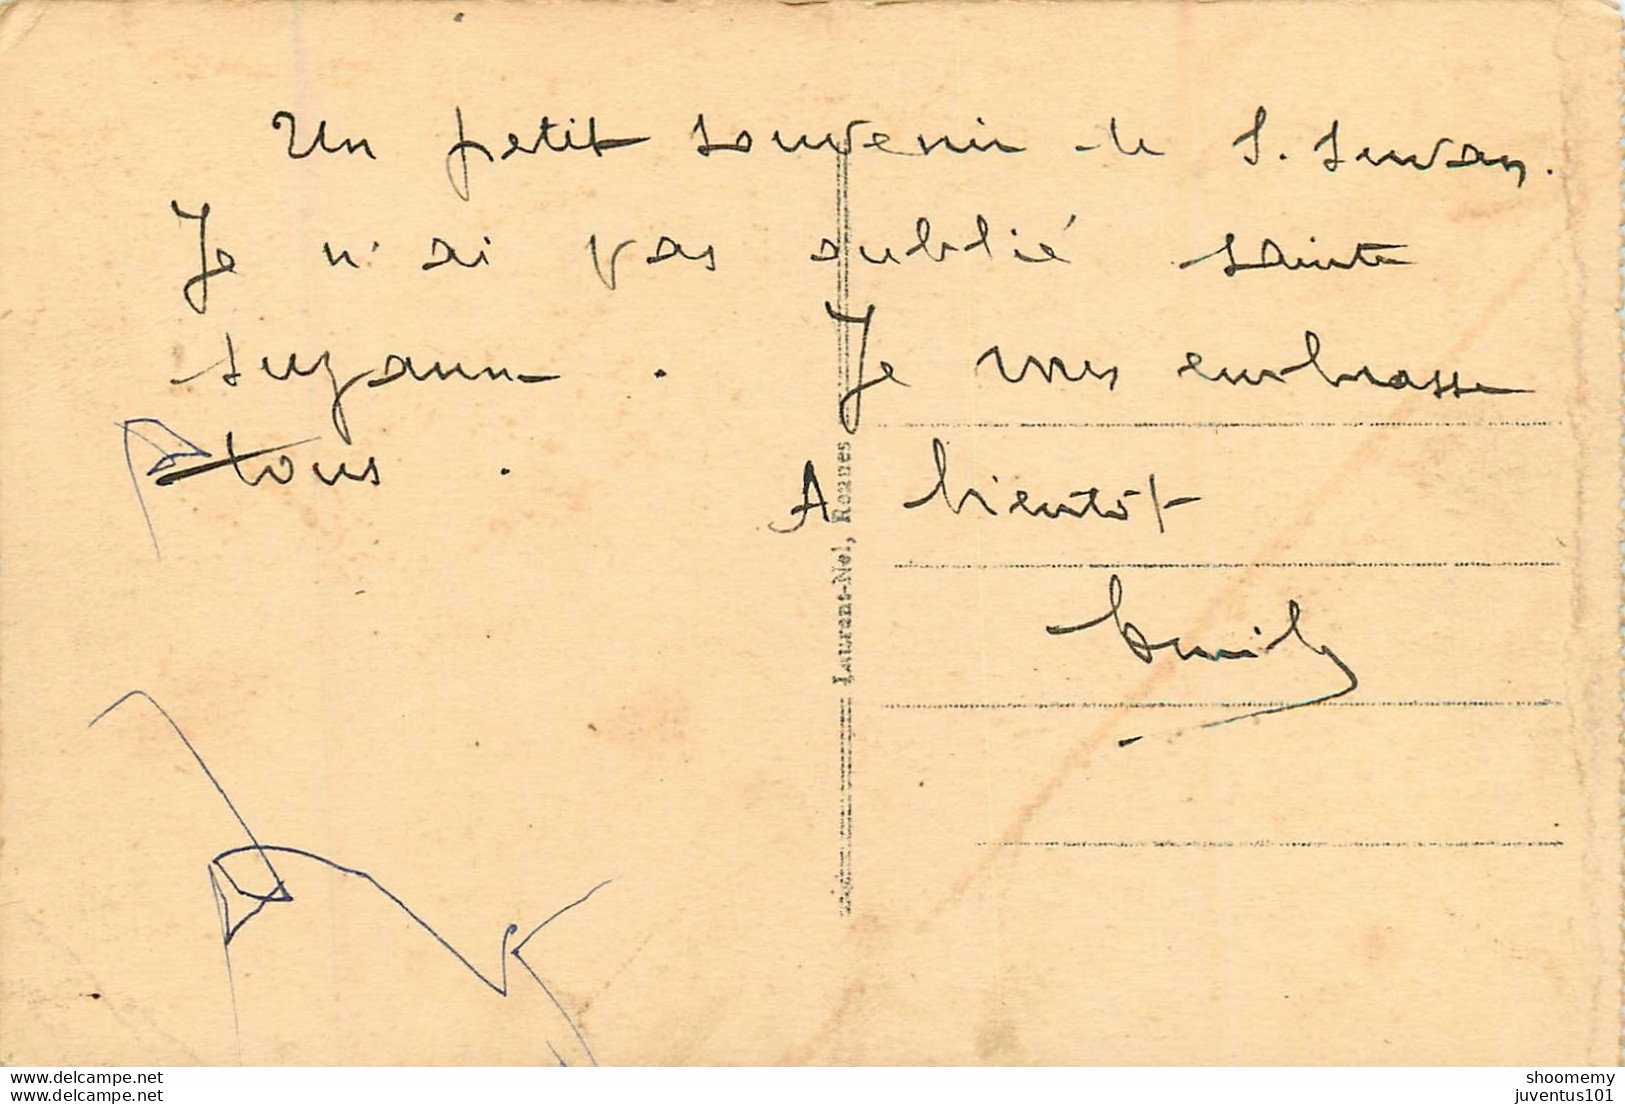 Un petit souvenir de S. Servan.
Je n'ai pas oublié sainte
suzanne. Je vous embrasse
tous.
A bientôt
Laurent-Nel, Rennes
shoomemy
juventus101
www.delcampe.net